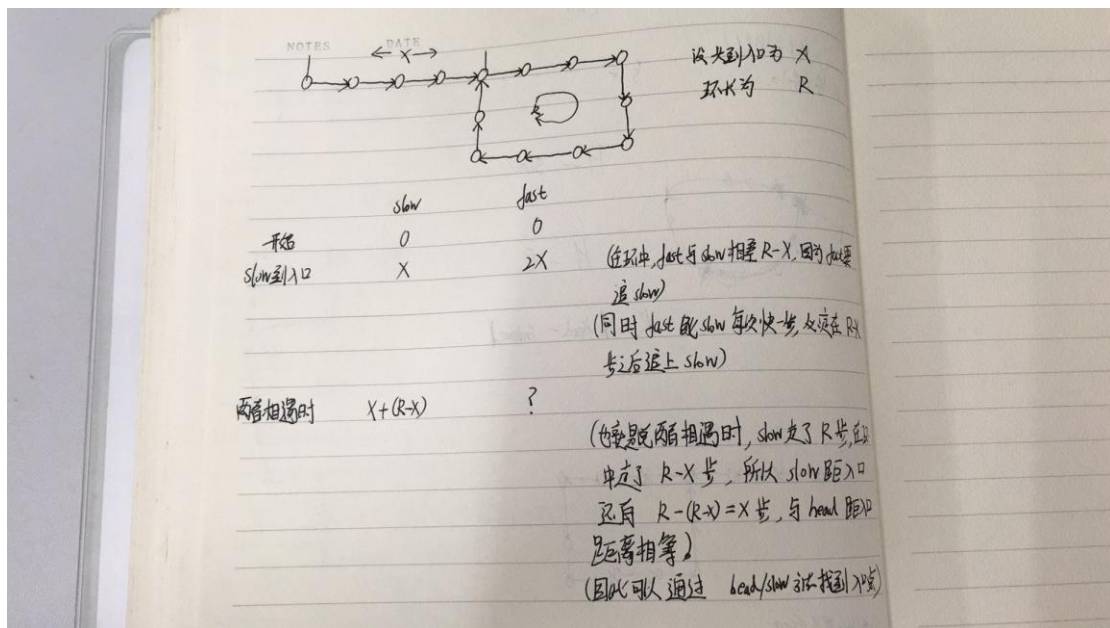 NOTES DATE
X
设头到入口为 X
环长为 R
R
slow fast
开始 0 0
slow到入口 X 2X (在环中,fast与slow相差R-X,因为fast要
追slow)
(同时fast比slow每次快一步,必定在R-X
步之后追上slow)
两者相遇时 X+(R-X) ?
(也就是说两者相遇时,slow走了R步,在环
中走了R-X步,所以slow距入口
还有 R-(R-X)=X步,与head距入口
距离相等)
(因此可以通过 head/slow 方法找到入口点)